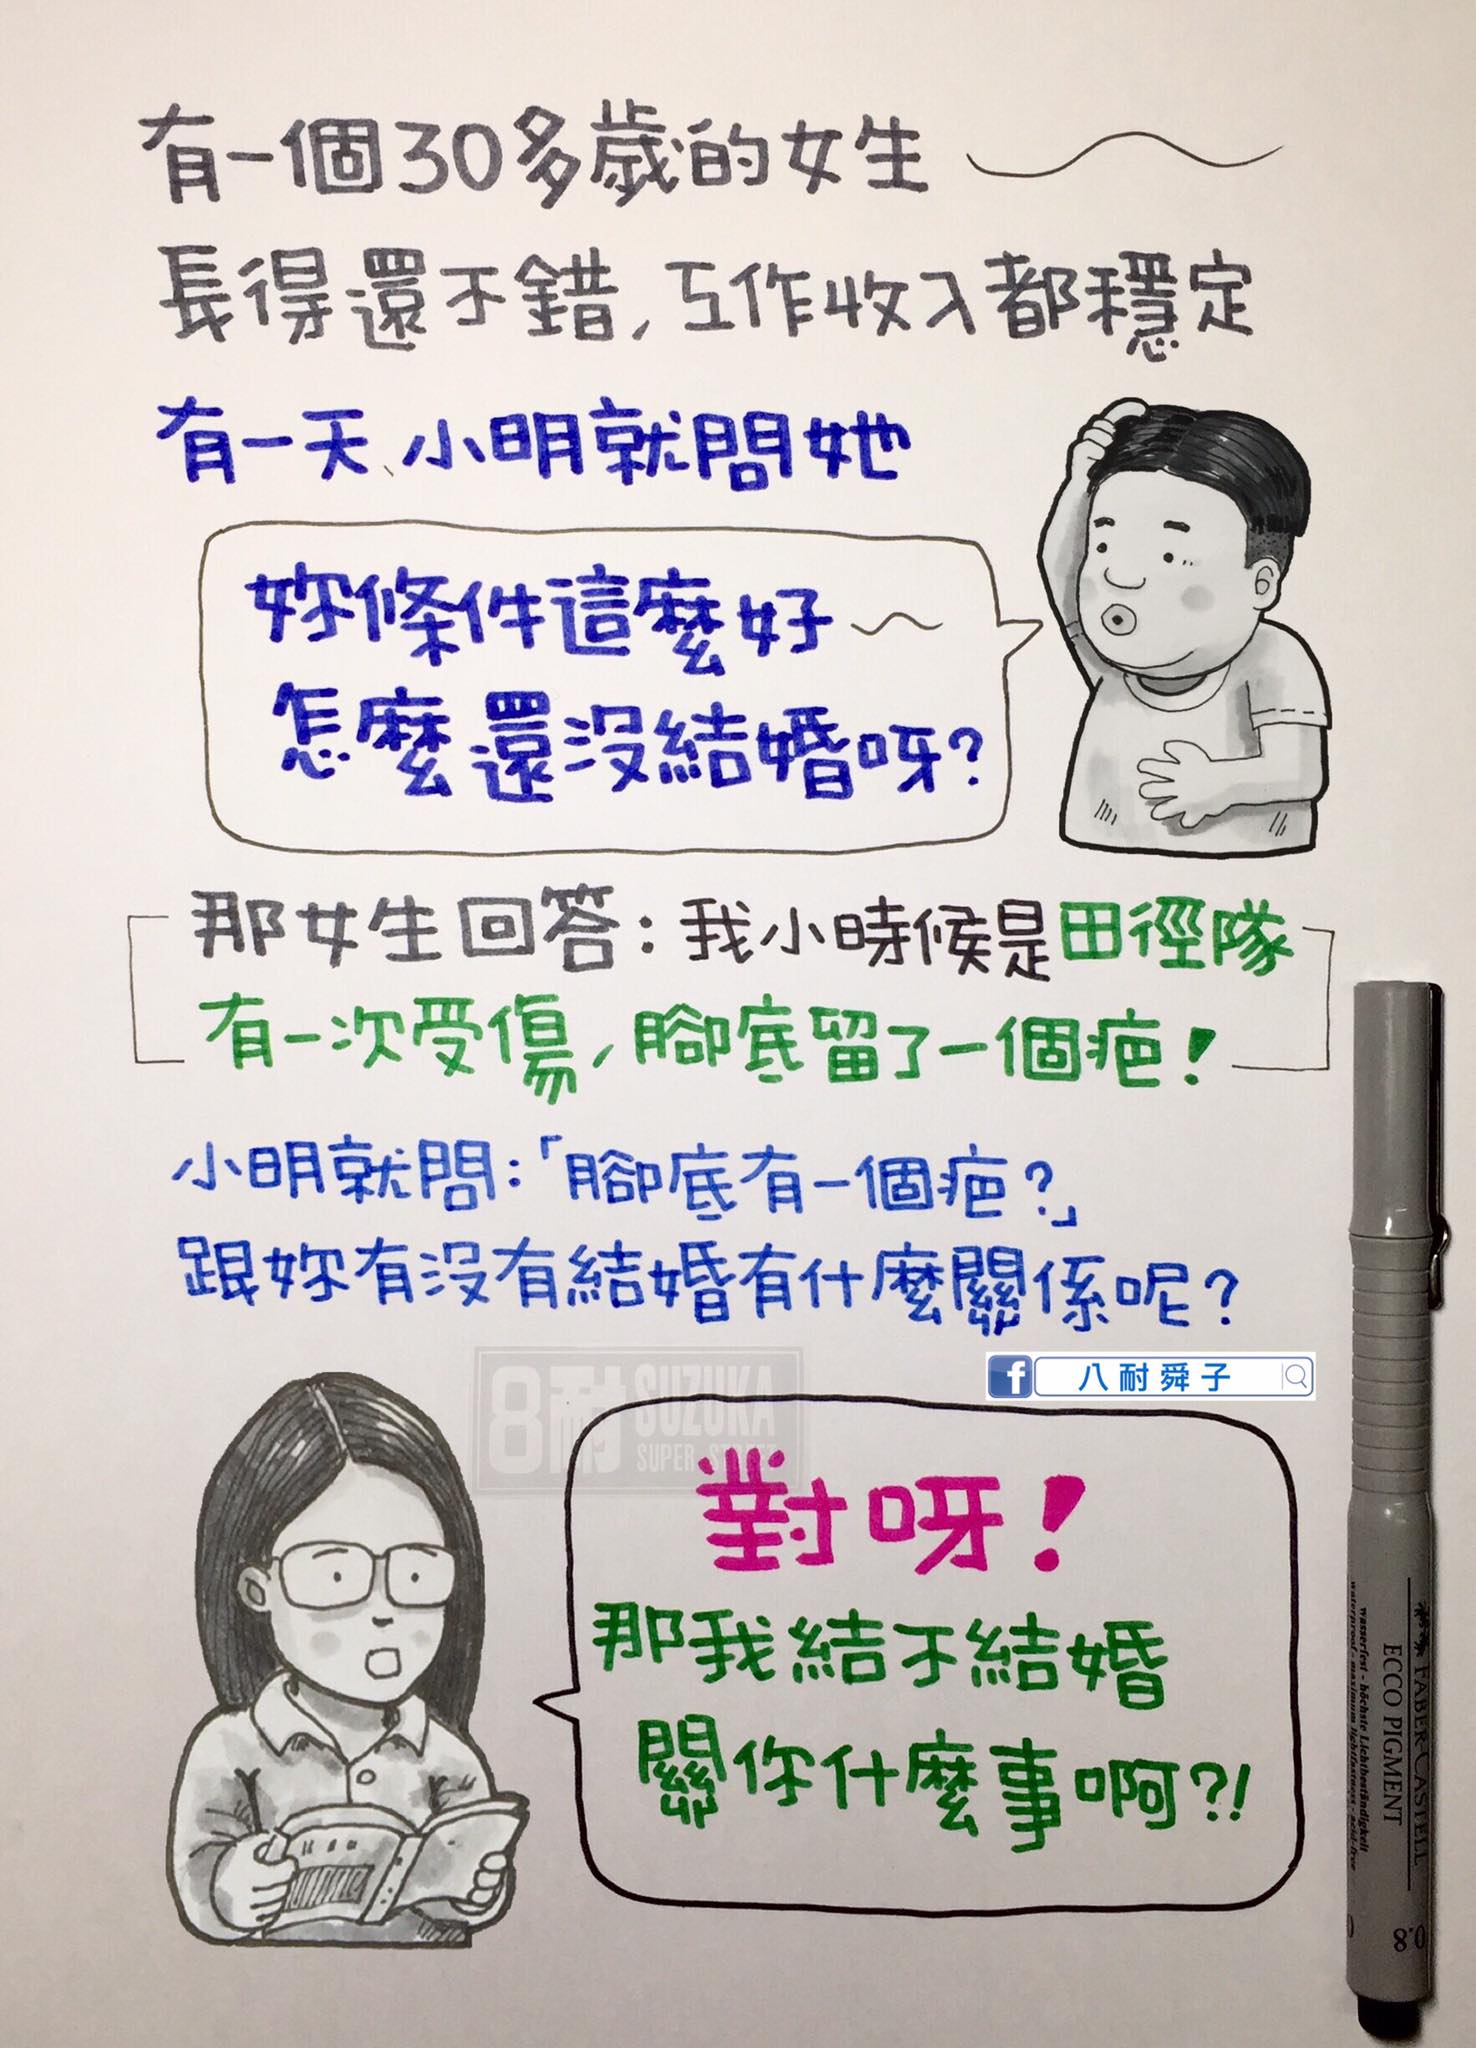 有一個30多歲的女生
長得還不錯,工作收入都穩定
有一天、小明就問她
妳條件這麼好
怎麼還沒結婚呀?
那女生回答:我小時候是田徑隊
有一次受傷,腳底留了一個疤!
小明就問:「腳底有一個疤?」
跟妳有沒有結婚有什麼關係呢?
八耐舜子
8耐 SUZUKA
SUPER STREET
對呀!
那我結不結婚
關你什麼事啊?!
FABER-CASTELL
ECCO PIGMENT
wasserfest - höchste Lichtbeständigkeit
waterproof - maximum lightfastness - acid-free
0.8